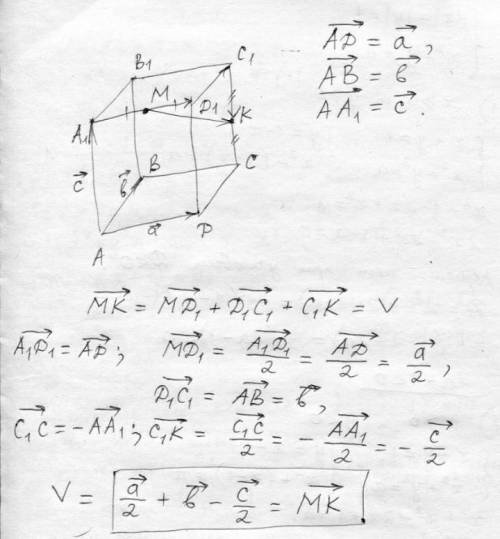 $\overrightarrow{AD} = \vec{a}$,
$\overrightarrow{AB} = \vec{b}$
$\overrightarrow{AA_1} = \vec{c}$.
B₁
C₁
M
D₁
A₁
K
$\vec{c}$
$\vec{b}$
B
C
$\vec{a}$
D
A
$\overrightarrow{MK} = \overrightarrow{MD_1} + \overrightarrow{D_1C_1} + \overrightarrow{C_1K} = V$
$\overrightarrow{A_1D_1} = \overrightarrow{AD}$; $\overrightarrow{MD_1} = \frac{\overrightarrow{A_1D_1}}{2} = \frac{\overrightarrow{AD}}{2} = \frac{\vec{a}}{2}$,
$\overrightarrow{D_1C_1} = \overrightarrow{AB} = \vec{b}$,
$\overrightarrow{C_1C} = -\overrightarrow{AA_1}$; $\overrightarrow{C_1K} = \frac{\overrightarrow{C_1C}}{2} = -\frac{\overrightarrow{AA_1}}{2} = -\frac{\vec{c}}{2}$
$V = \frac{\vec{a}}{2} + \vec{b} - \frac{\vec{c}}{2} = \overrightarrow{MK}$